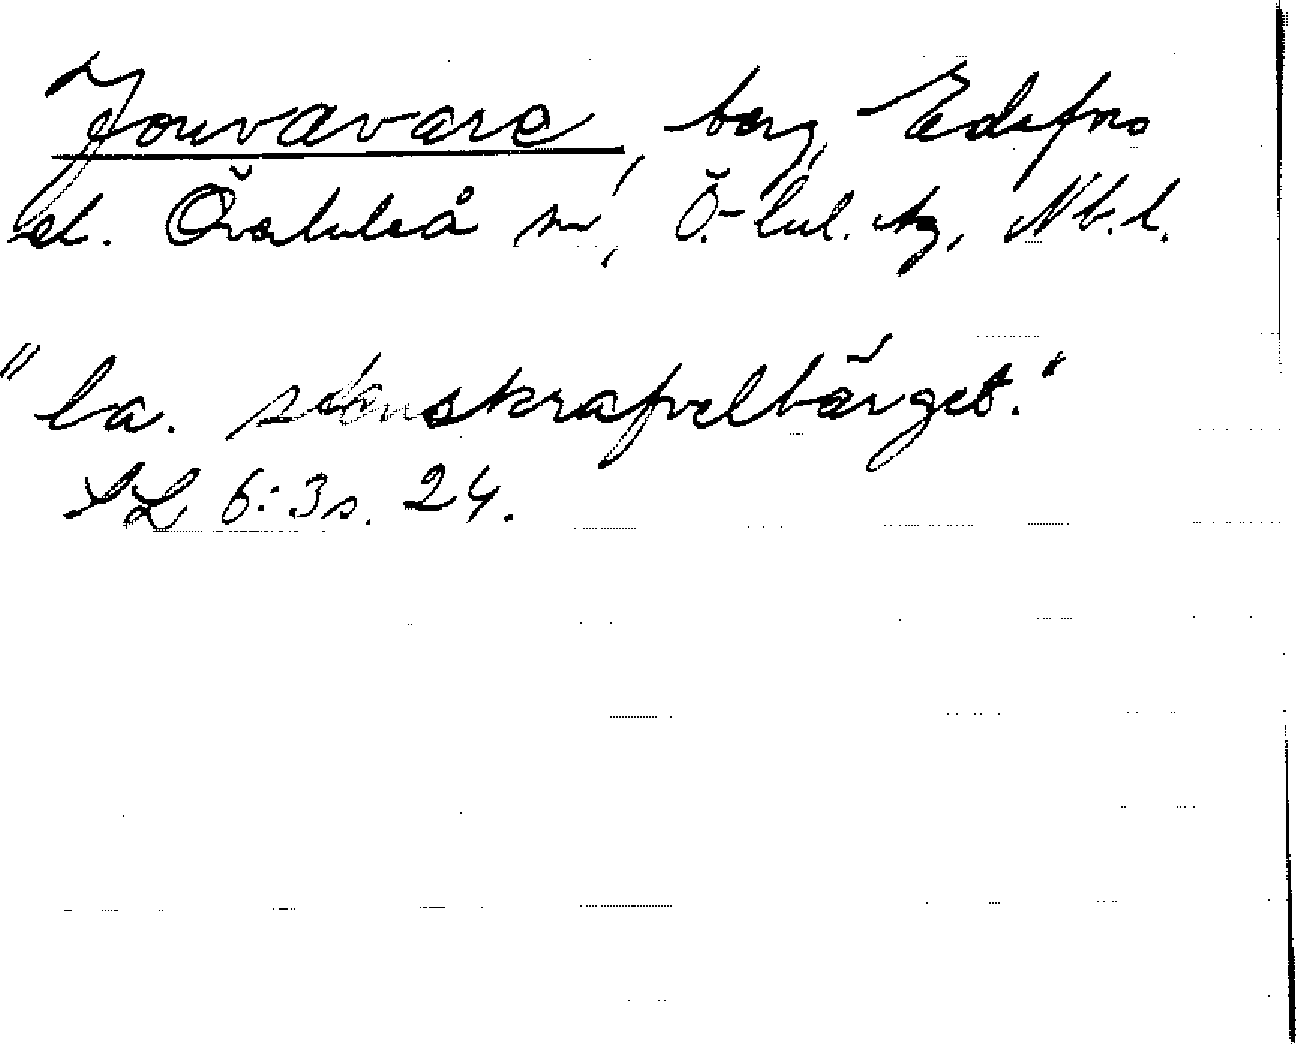 Jouvavare, berg, Edefors
el. Överluleå sn, Ö.-Lul. tg, Nb.l.
"la. stenskrafvelbärget."
SL 6:3 s. 24.